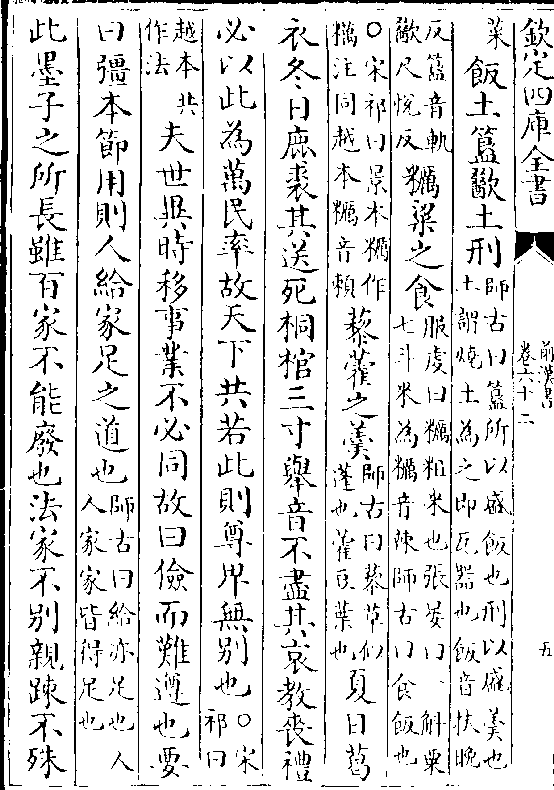 欽定四庫全書
前漢書
卷六十二
五
菜飯土簋歠土刑師古曰簋所以盛飯也刑以盛羹也土謂燒土為之即瓦器也飯音扶晚
反簋音軌歠尺悅反糲粱之食服虔曰糲粗米也張晏曰一斛粟七斗米為糲音辣師古曰食飯也
○宋祁曰景本糲作㰖注同越本糲音賴藜藿之羹師古曰藜草似蓬也藿豆葉也夏日葛
衣冬日鹿裘其送死桐棺三寸舉音不盡其哀教喪禮
必以此為萬民率故天下共若此則尊卑無別也○宋祁曰
越本共作法夫世異時移事業不必同故曰儉而難遵也要
曰彊本節用則人給家足之道也師古曰給亦足也人人家家皆得足也
此墨子之所長雖百家不能廢也法家不別親疎不殊